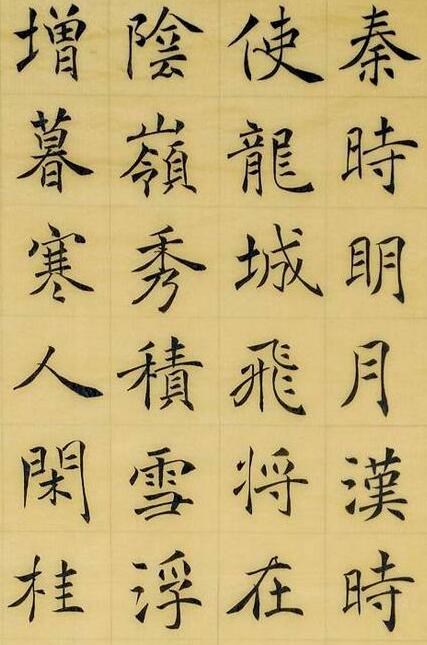 秦時明月漢時
使龍城飛将在
陰嶺秀積雪浮
増暮寒人閑桂